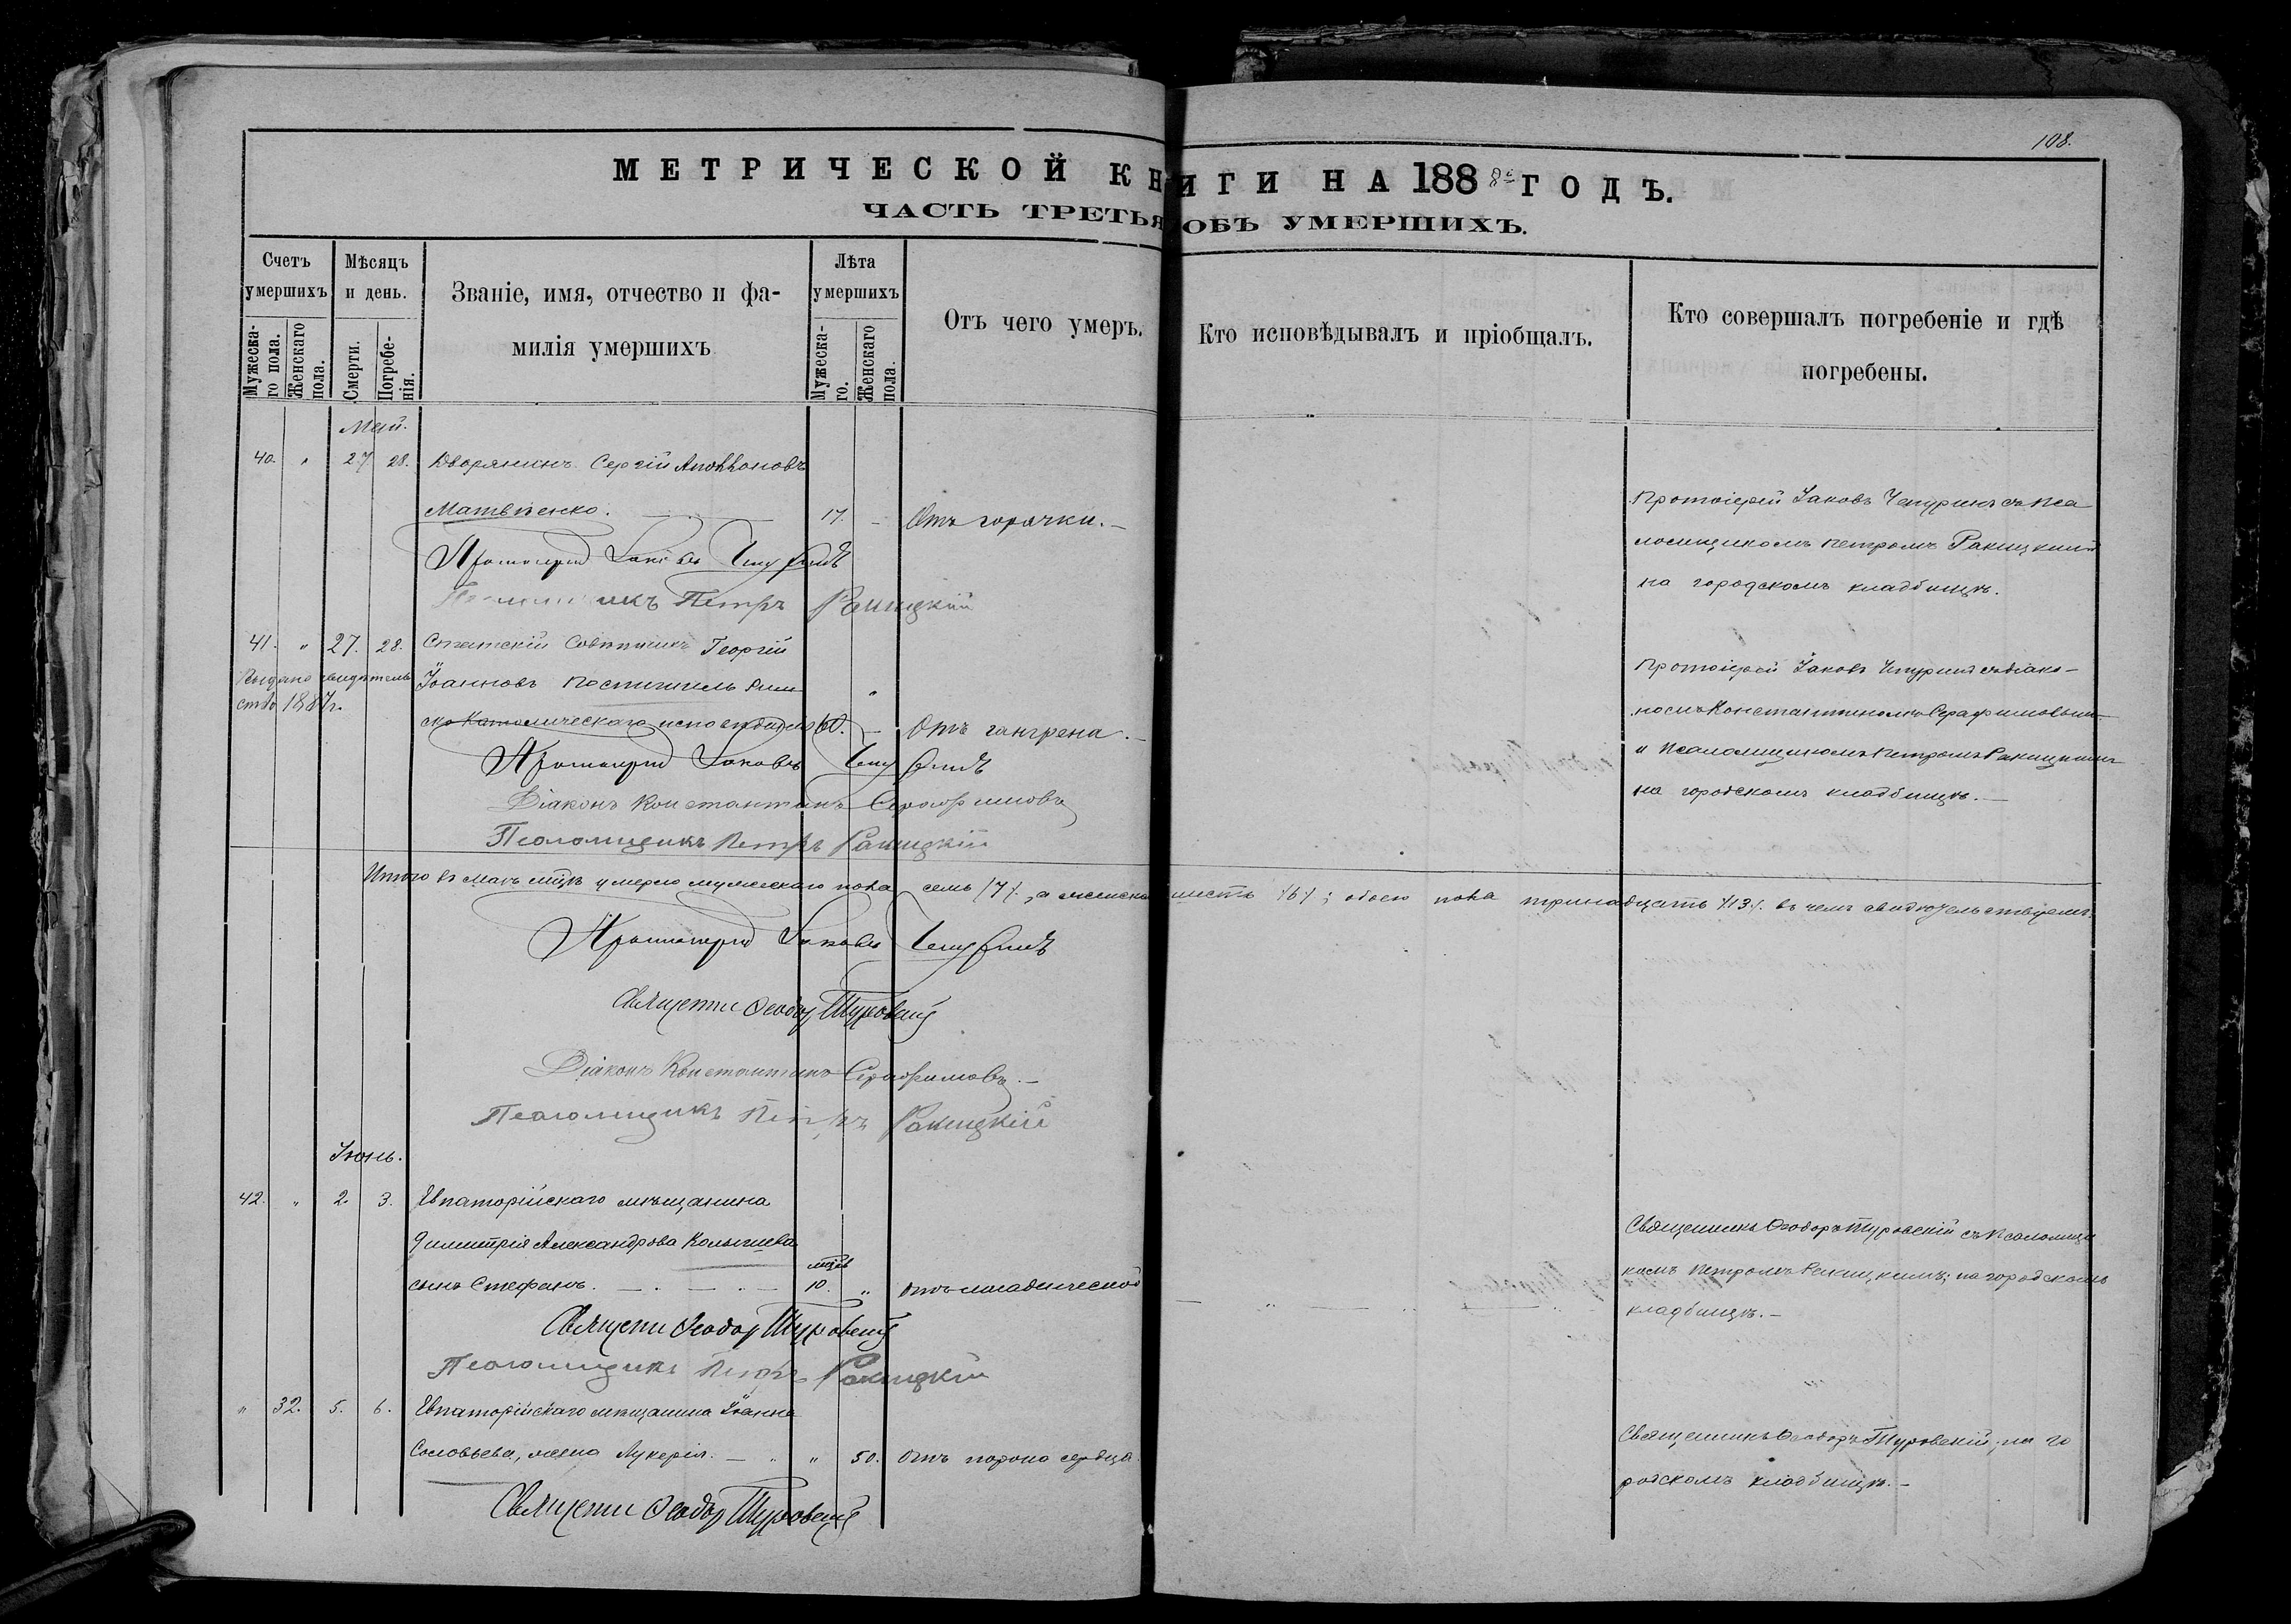 108.
МЕТРИЧЕСКОЙ КНИГИ НА 1888й ГОДЪ.
ЧАСТЬ ТРЕТЬЯ ОБЪ УМЕРШИХЪ.
Счетъ умершихъ
Мѣсяцъ и день.
Званіе, имя, отчество и фамилія умершихъ
Лѣта умершихъ
Отъ чего умеръ.
Кто исповѣдывалъ и пріобщалъ.
Кто совершалъ погребеніе и гдѣ погребены.
Мужеска-го пола.
Женскаго пола.
Смерти.
Погребе-нія.
Мужеска-го.
Женскаго пола.
Май.
40. " 27 28. Дворянинъ Сергій Аполлоновъ
Матвѣенко. 17. - Отъ горячки. -
Протоіерей Іаковъ Чепуринъ съ Пса
ломщикомъ Петромъ Ракицкимъ
на городскомъ кладбищѣ.
Протоіерей Іаковъ Чепуринъ
Псаломщикъ Петръ Ракицкій
41. " 27. 28. Статскій Совѣтникъ Георгій
Выдано свидѣтель
ство 1887г.
Іоанновъ Рим
ско-Католическаго исповѣданія 60. - Отъ гангрена. -
Протоіерей Іаковъ Чепуринъ съ діако-
номъ Константиномъ Серафимовымъ
и Псаломщикомъ Петромъ Ракицкимъ
на городскомъ кладбищѣ. -
Протоіерей Іаковъ Чепуринъ
Діаконъ Константинъ Серафимовъ
Псаломщикъ Петръ Ракицкій
Итого въ маѣ мцѣ умерло мужескаго пола семь /7/., а женска шесть /6/; обоего пола тринадцать /13/. въ чемъ свидѣтельствуемъ.
Протоіерей Іаковъ Чепуринъ
Священни Ѳеодоръ Туровскій
Діаконъ Константинъ Серафимовъ. -
Псаломщикъ Петръ Ракицкій
Іюнь.
42. " 2. 3. Евпаторійскаго мѣщанина
Димитрія Александрова
мцѣв
сынъ Стефанъ. 10. " отъ младенческой
Священникъ Ѳеодоръ Туровскій съ Псаломщи
комъ Петромъ Ракицкимъ; на городскомъ
кладбищѣ. -
Священни Ѳеодоръ Туровскій
Псаломщикъ Петръ Ракицкій
" 32. 5. 6. Евпаторійскаго мѣщанина Іоанна
Соловьева, жена Лукерія. - " 50. отъ порока сердца.
Священникъ Ѳеодоръ Туровскій; на го
родскомъ кладбищѣ. -
Священни Ѳеодоръ Туровскій